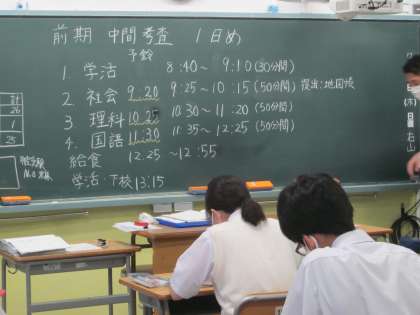 前期 中間考査 1日め
予鈴
1. 学活 8:40〜 9:10 (30分間)
2. 社会 9.20 9:25〜 10:15 (50分間) 提出:地図帳
3. 理科 10.25 10:30〜 11:20 (50分間)
4. 国語 11.30 11:35〜 12:25 (50分間)
給食 12:25 〜12:55
学活・下校 13:15
21
26
1
25
(木)
日直